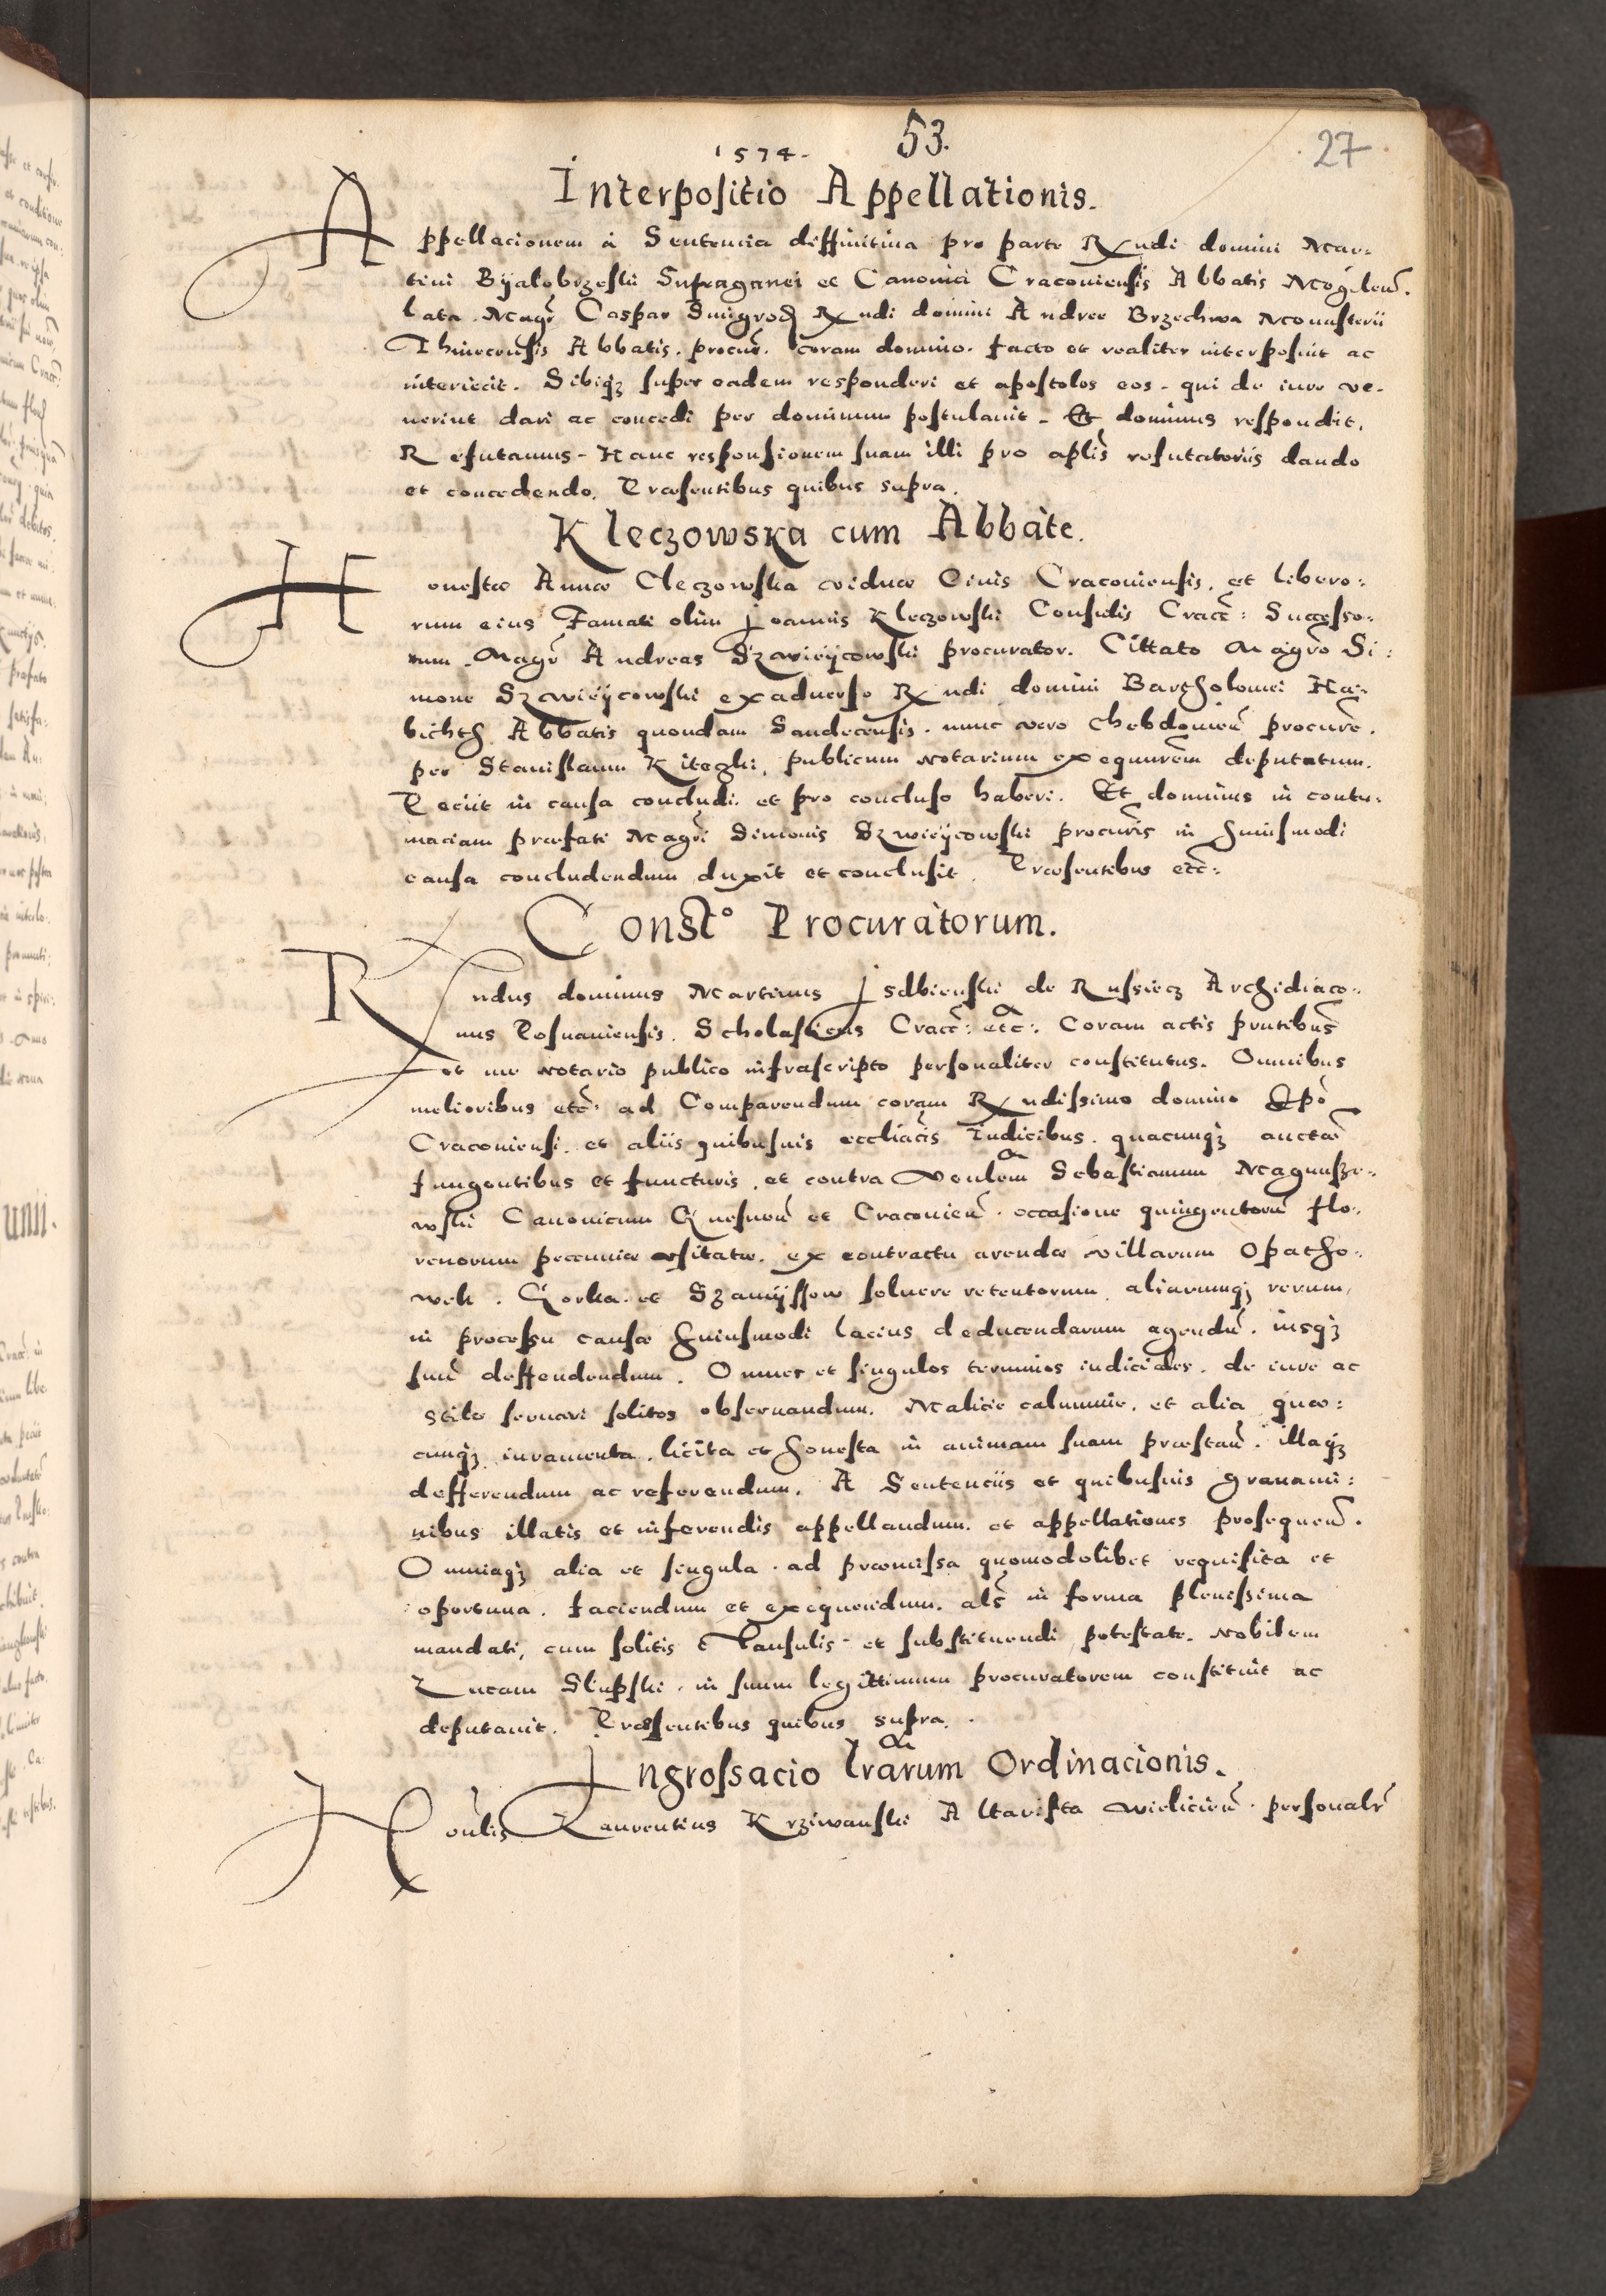 53.
27
1574.
Interpositio Appellationis.
Appellacionem à Sentencia diffinitiua pro parte Rndi domini Mar-
tini Byalobrzeski Sufraganei et Canonici Cracouiensis Abbatis Mogilen.
lata. Magr Caspar Smigrod Rndi domini Andree Brzechwa Monasterii
Thinecensis Abbatis. procur. coram domino. facto et realiter interposuit ac
interiecit. Sibiq3 super eadem responderi et apostolos eos. qui de iure ve-
nerint dari ac concedi per dominum postulauit. Et dominus respondit.
Refutamus. Hanc responsionem suam illi pro aplis refutatoriis dando
et concedendo. Præsentibus quibus supra.
Kleczowska cum Abbate.
Honestæ Annæ Cleczowska viduæ Ciuis Cracouiensis. et libero:
rum eius Famati olim Joannis Kleczowski Consulis Cracc: Successo:
rum. Magr Andreas Szwieÿcowski procurator. Cittato Magro Si:
mone Szwieÿcowski exaduerso Rndi domini Bartholomei Ha:
bichth Abbatis quondam Sandecensis. nunc vero Chebdouien procure.
per Stanislaum Kiteczki. publicum notarium exequurem deputatum.
Peciit in causa concludi. et pro concluso haberi. Et dominus in contu:
maciam præfati Magri Simonis Szwieÿcowski procuris in huiusmodi
causa concludendum duxit et conclusit. Præsentibus etc:
Constо Procuratorum.
Rndus dominus Martinus Jsdbienski de Russiecz Archidiaco:
nus Posnaniensis. Scholasticus Cracc: etc: Coram actis pntibus
et me notario publico infrascripto personaliter constitutus. Omnibus
melioribus etc: ad Comparendum coram Rndissimo domino Epo
Cracouiensi. et aliis quibusuis eccliacis Iudicibus. quacunq3 auctae
fungentibus et functuris. et contra Venlem Sebastianum Magnusze:
wski Canonicum Gnesnen et Cracouien. occasione quingentoru flo:
renorum pecuniæ usitatæ. ex contractu arendæ villarum Opatho:
wek. Gorka. et Szamÿssow soluere retentorum. aliarumq3 rerum,
in processu causæ huiusmodi lacius deducendarum agendu. iusq3
suu deffendendum. Omnes et singulos terminos iudiciales. de iure ac
stilo seruari solitos obseruandum. Malicie calumnie. et alia quæ:
cunq3 iuramenta. licita et honesta in animam suam præstan. illaq3
defferendum ac referendum. A Sentenciis et quibusuis grauami:
nibus illatis et inferendis appellandum. et appellationes prosequen.
Omniaq3 alia et singula. ad præmissa quomodolibet requisita et
oportuna. faciendum et exequendum. als in forma plenissima
mandati, cum solitis Clausulis. et substituendi potestate. Nobilem
Lucam Slupski. in suum legittimum procuratorem constituit ac
deputauit. Præsentibus quibus supra.
Ingrossacio lrarum Ordinacionis.
Honlis Laurentius Krziwanski Altarista Wielicien. personalr